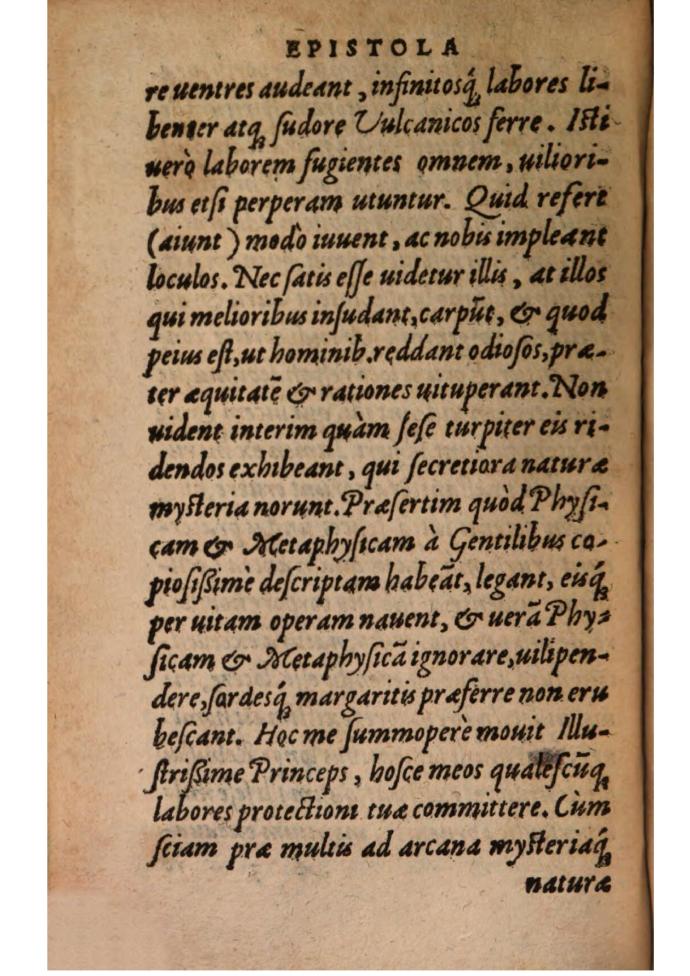 EPISTOLA
re uentres audeant, infinitosq́; labores li-
benter atq; sudore Vulcanicos ferre. Isti
uerò laborem fugientes omnem, uiliori-
bus etsi perperam utuntur. Quid refert
(aiunt) modò iuuent, ac nobis impleant
loculos. Nec satis esse uidetur illis, at illos
qui melioribus insudant, carpūt, & quod
peius est, ut hominib. reddant odiosos, præ-
ter æquitatē & rationes uituperant. Non
uident interim quàm sese turpiter eis ri-
dendos exhibeant, qui secretiora naturæ
mysteria norunt. Præsertim quòd Physi-
cam & Metaphysicam à Gentilibus co-
piosißimè descriptam habeāt, legant, eisq́;
per uitam operam nauent, & uerā Phy-
sicam & Metaphysicā ignorare, uilipen-
dere, sordesq́; margaritis præferre non eru
bescant. Hoc me summoperè mouit Illu-
strißime Princeps, hosce meos qualescūq;
labores protectioni tuæ committere. Cùm
sciam præ multis ad arcana mysteriaq́;
naturæ